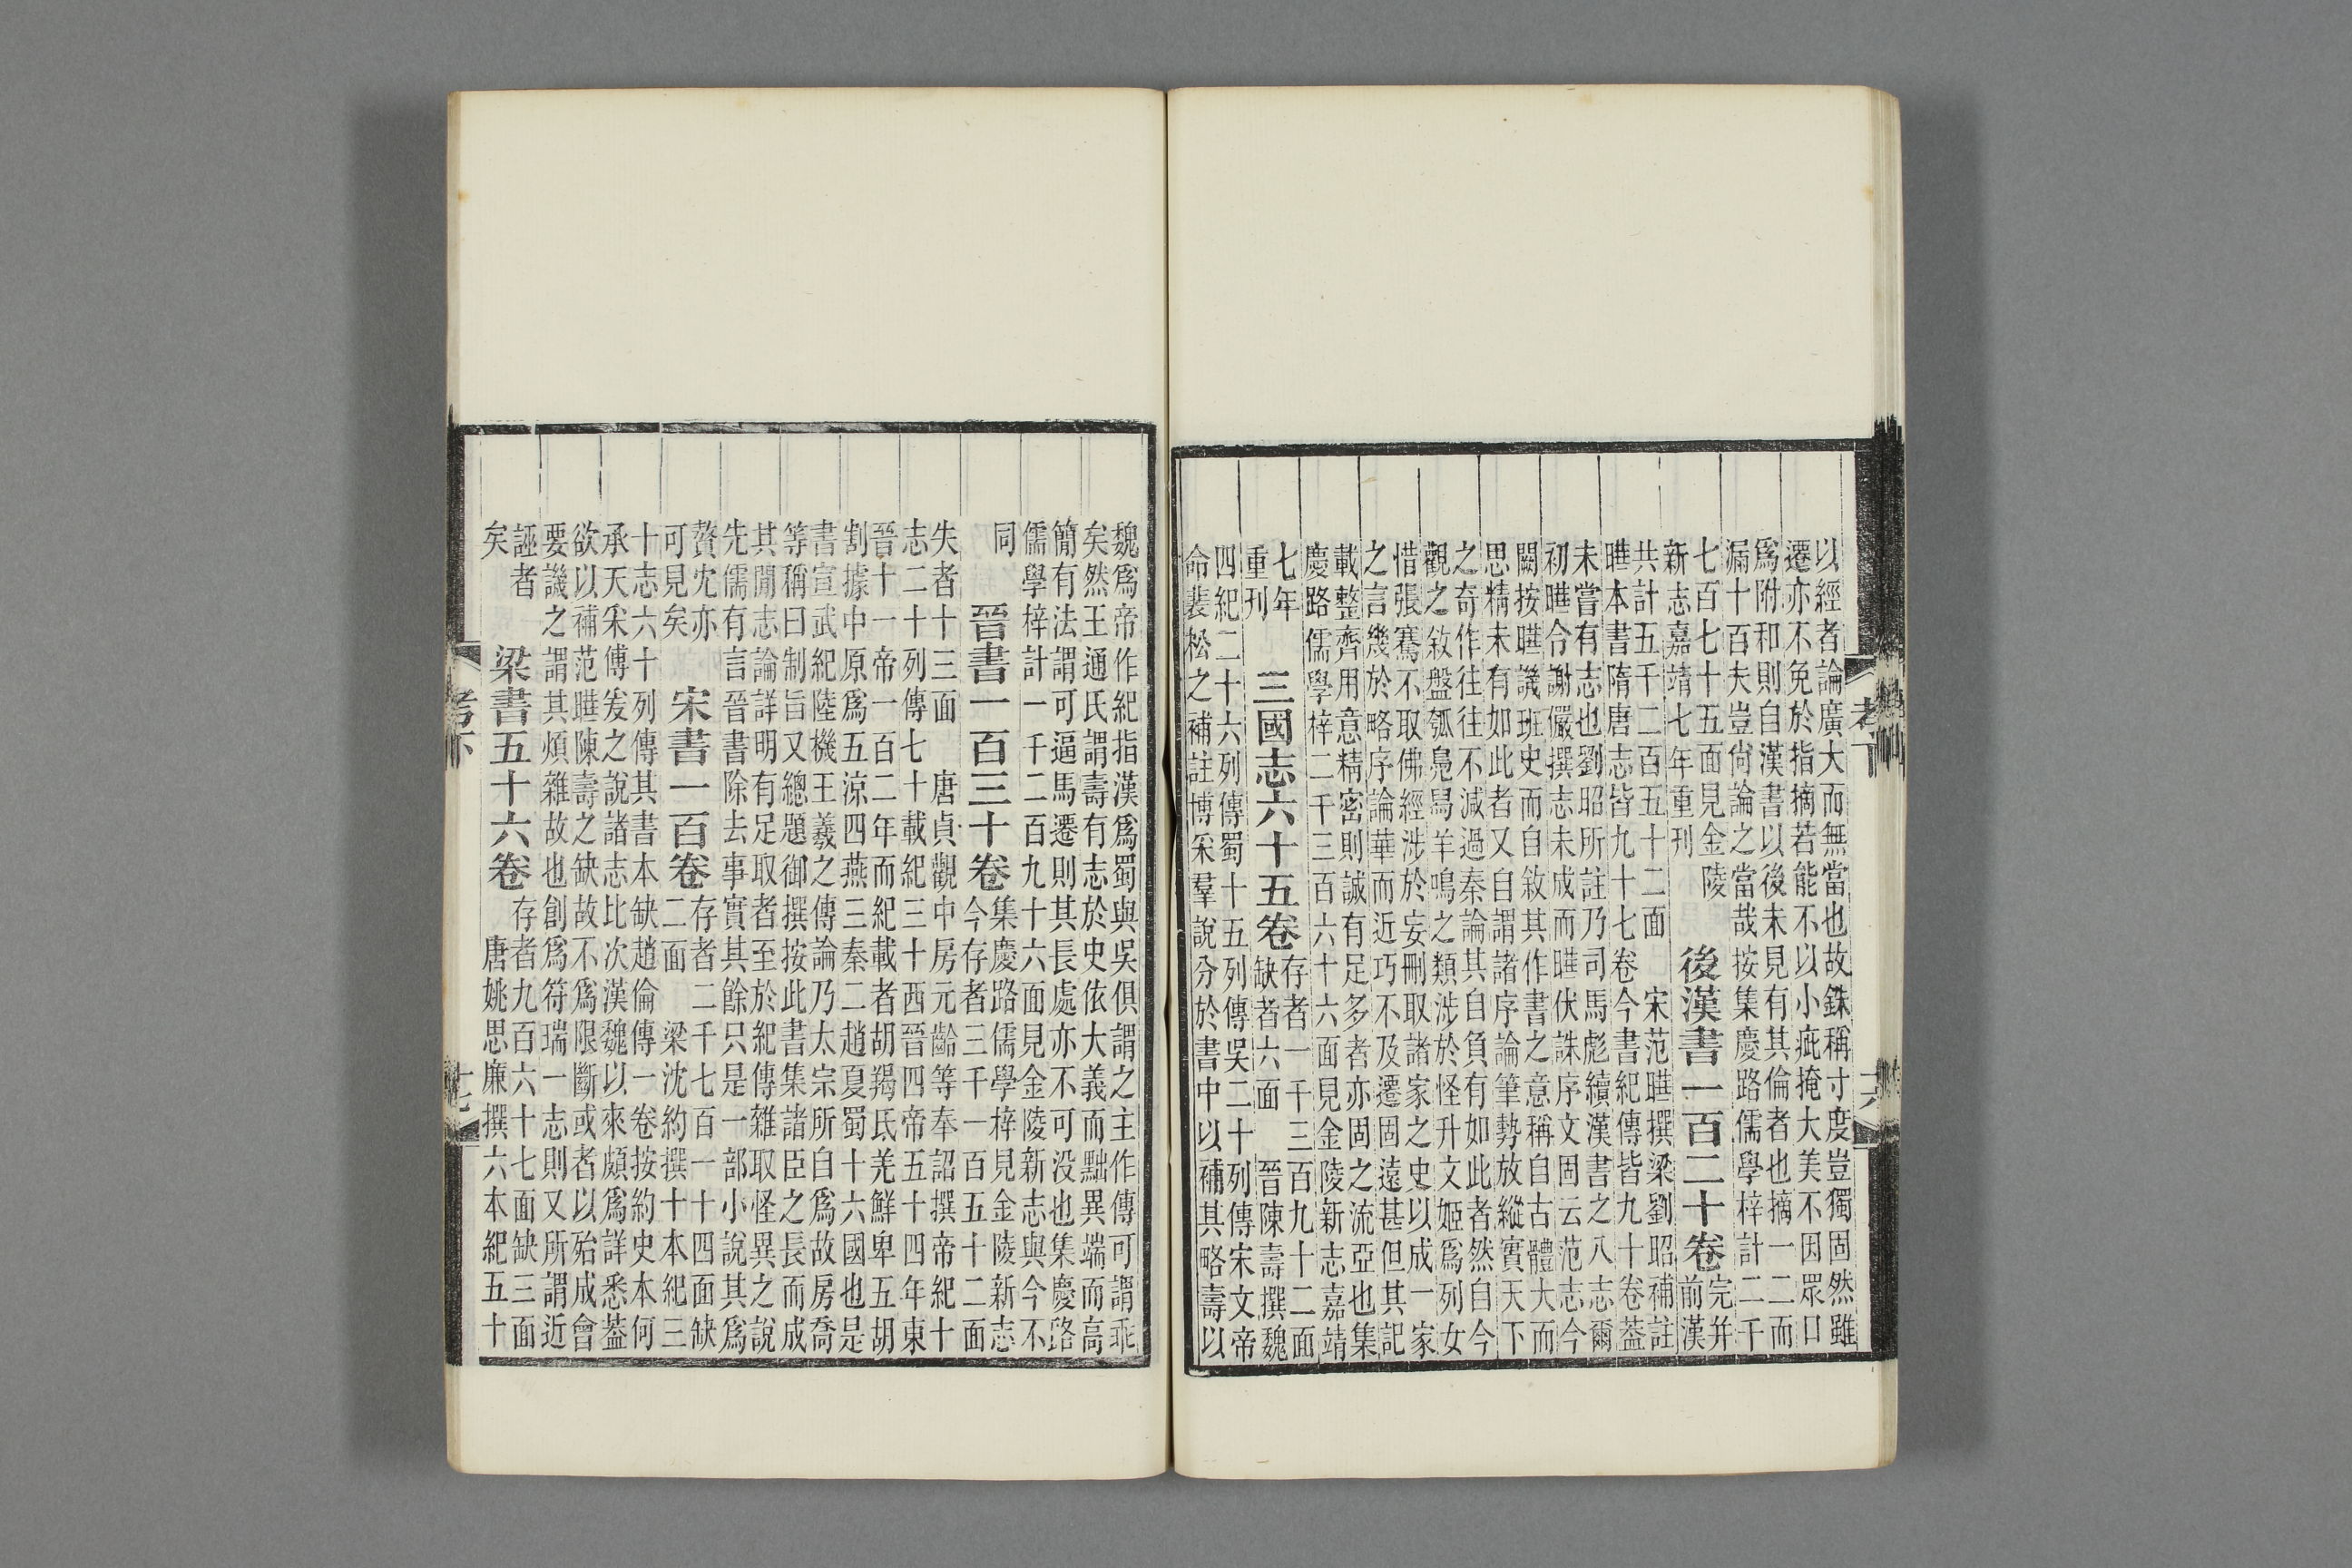 以經者論廣大而無當也故銖稱寸度豈獨固然雖
遷亦不免於指摘若能不以小疵掩大美不因眾口
爲附和則自漢書以後未見有其倫者也摘一二而
漏十百夫豈尙論之當哉按集慶路儒學梓計二千
七百七十五面見金陵
新志嘉靖七年重刊
後漢書一百二十卷
完并
前漢
共計五千二百五十二面　宋范曄撰梁劉昭補註
曄本書隋唐志皆九十七卷今書紀傳皆九十卷葢
未嘗有志也劉昭所註乃司馬彪續漢書之八志爾
初曄令謝儼撰志未成而曄伏誅序文固云范志今
闕按曄譏班史而自敘其作書之意稱自古體大而
思精未有如此者又自謂諸序論筆勢放縱實天下
之奇作往往不減過秦論其自負有如此者然自今
觀之敘盤瓠鳧舄羊鳴之類涉於怪升文姬爲列女
惜張騫不取佛經涉於妄刪取諸家之史以成一家
之言幾於略序論華而近巧不及遷固遠甚但其記
載整齊用意精密則誠有足多者亦固之流亞也集
慶路儒學梓二千三百六十六面見金陵新志嘉靖
七年
重刊
三國志六十五卷
存者一千三百九十二面
缺者六面　晉陳壽撰魏
四紀二十六列傳蜀十五列傳吳二十列傳宋文帝
命裴松之補註博采羣說分於書中以補其略壽以
魏爲帝作紀指漢爲蜀與吳俱謂之主作傳可謂乖
矣然王通氏謂壽有志於史依大義而黜異端而高
簡有法謂可逼馬遷則其長處亦不可沒也集慶路
儒學梓計一千二百九十六面見金陵新志與今不
同
晉書一百三十卷
集慶路儒學梓見金陵新志
今存者三千一百五十二面
失者十三面　唐貞觀中房元齡等奉詔撰帝紀十
志二十列傳七十載紀三十西晉四帝五十四年東
晉十一帝一百二年而紀載者胡羯氐羌鮮卑五胡
割據中原爲五涼四燕三秦二趙夏蜀十六國也是
書宣武紀陸機王羲之傳論乃太宗所自爲故房喬
等稱曰制旨又總題御撰按此書集諸臣之長而成
其閒志論詳明有足取者至於紀傳雜取怪異之說
先儒有言晉書除去事實其餘只是一部小說其爲
贅冘亦
可見矣
宋書一百卷
存者二千七百一十四面缺
二面　梁沈約撰十本紀三
十志六十列傳其書本缺趙倫傳一卷按約史本何
承天采傳爰之說諸志比次漢魏以來頗爲詳悉葢
欲以補范曄陳壽之缺故不爲限斷或者以殆成會
要譏之謂其煩雜故也創爲符瑞一志則又所謂近
誣者
矣
梁書五十六卷
存者九百六十七面缺三面
唐姚思廉撰六本紀五十
考下
六
考下
十七